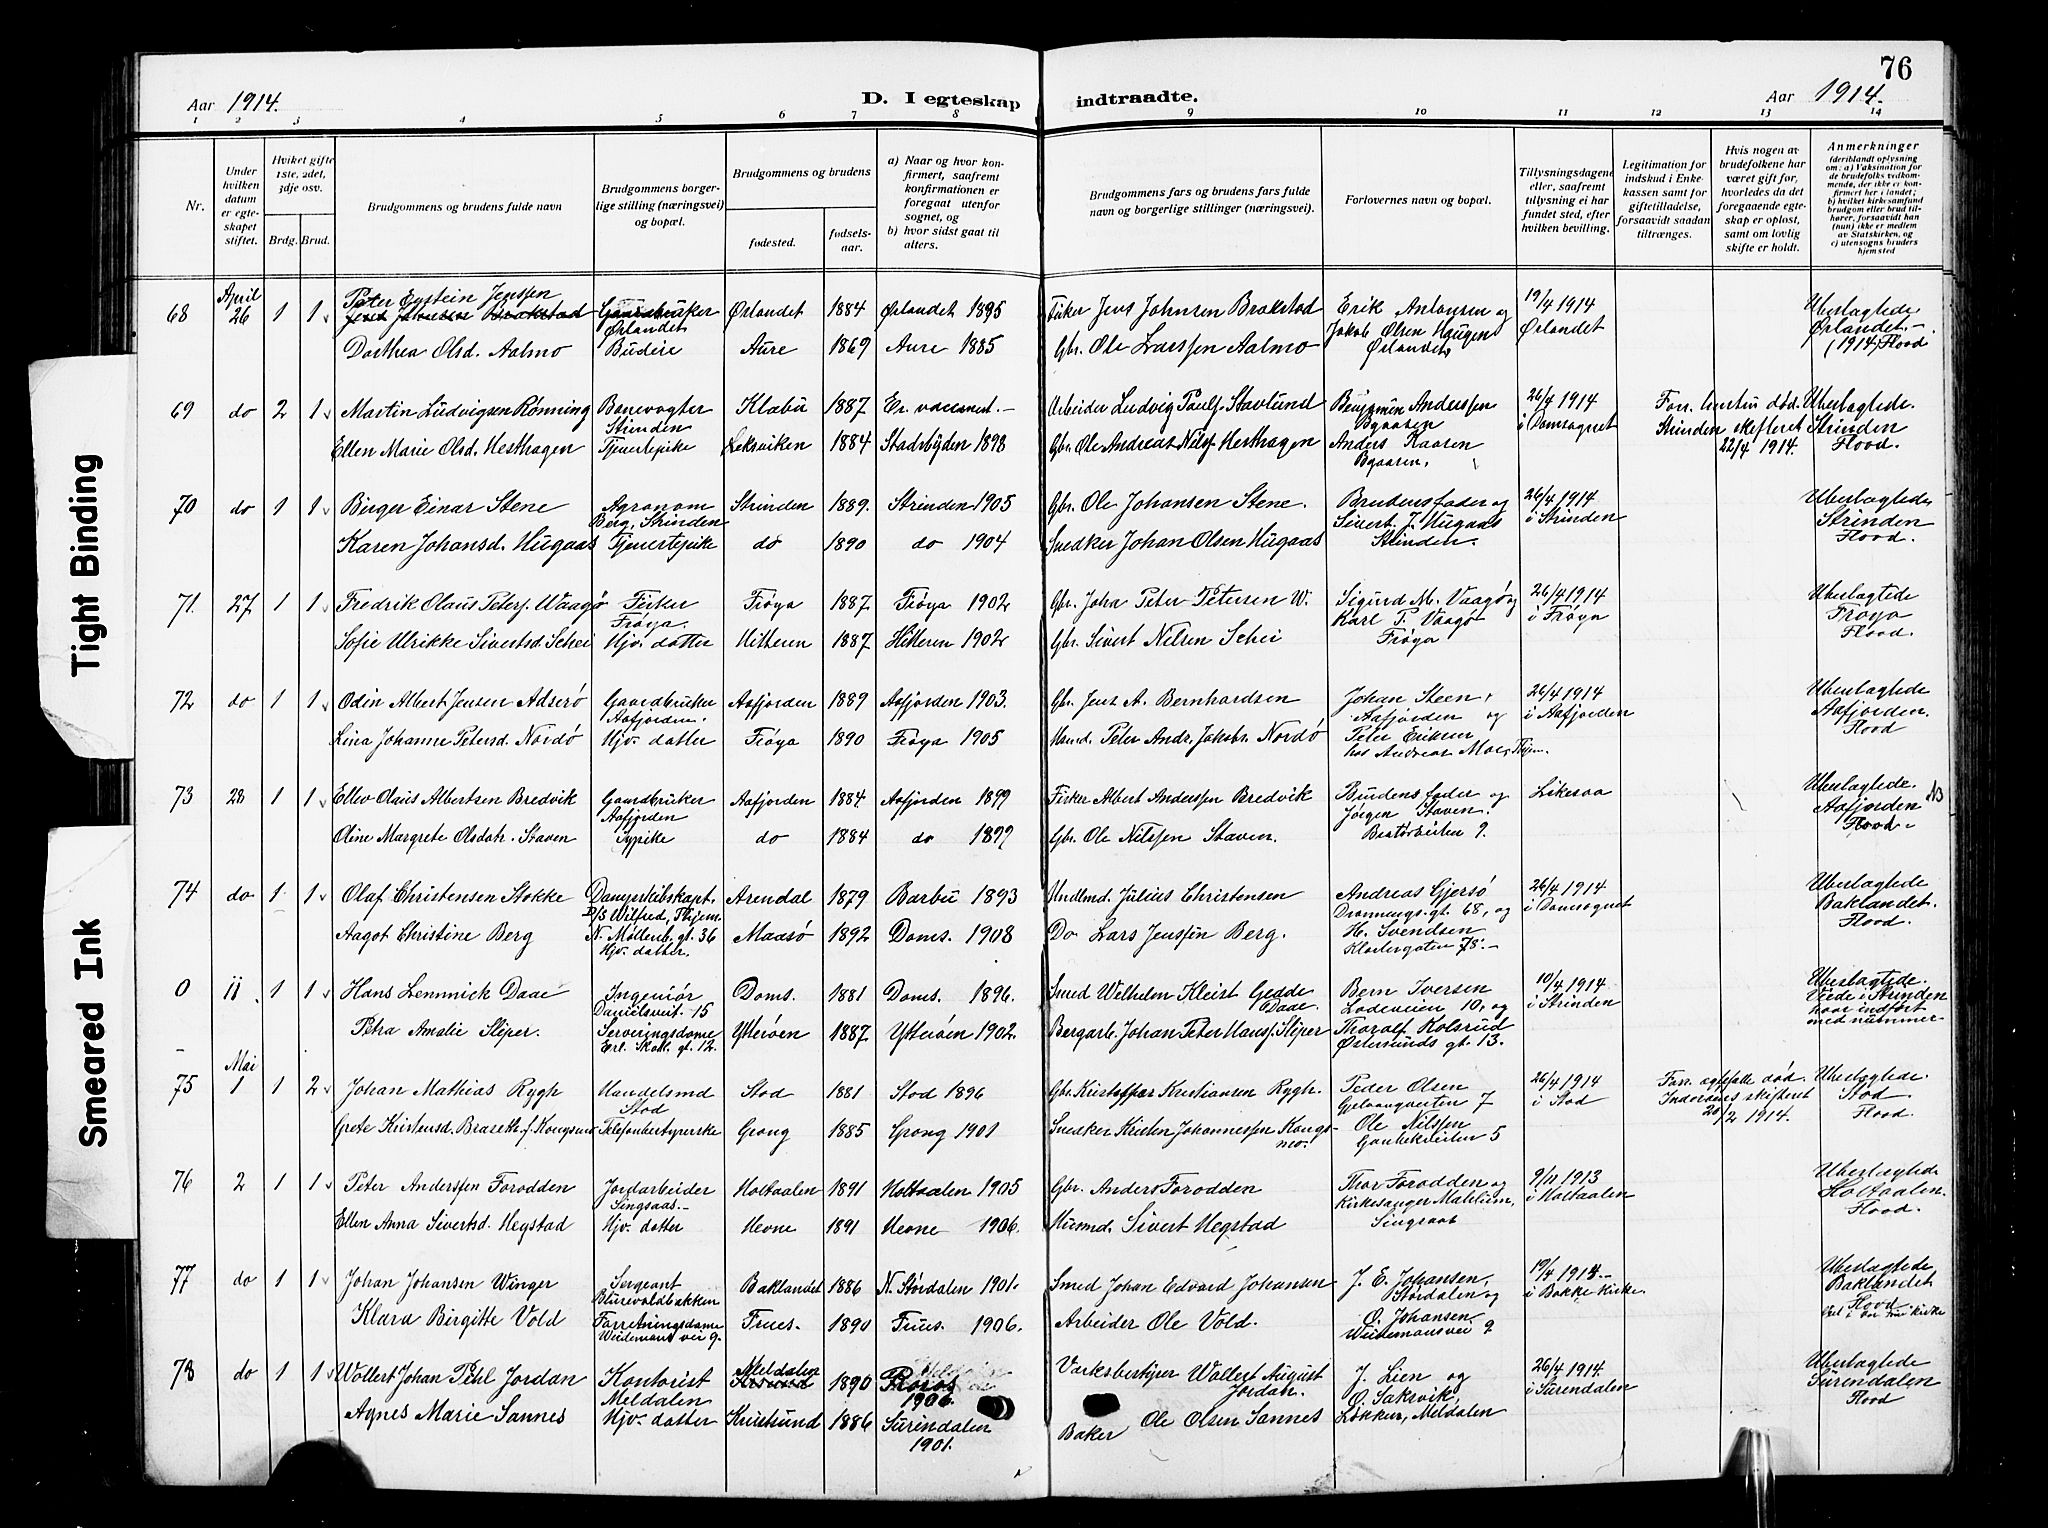 76
Aar 1914. D. I egteskap indtraadte. Aar 1914.
1 2 3 4 5 6 7 8 9 10 11 12 13 14
Nr.
Under hvilken datum er egteskapet stiftet.
Hvilket gifte 1ste, 2det, 3dje osv.
Brdg. Brud.
Brudgommens og brudens fulde navn
Brudgommens borgerlige stilling (næringsvei) og bopæl.
Brudgommens og brudens
fødested. fødselsaar.
a) Naar og hvor konfirmert, saafremt konfirmationen er foregaat utenfor sognet, og
b) hvor sidst gaat til alters.
Brudgommens fars og brudens fars fulde navn og borgerlige stillinger (næringsvei).
Forlovernes navn og bopæl.
Tillysningsdagene eller, saafremt tillysning ei har fundet sted, efter hvilken bevilling.
Legitimation for indskud i Enkekassen samt for giftetilladelse, forsaavidt saadan tiltrænges.
Hvis nogen av brudefolkene har været gift før, hvorledes da det foregaaende egteskap er opløst, samt om lovlig skifte er holdt.
Anmerkninger (deriblandt oplysning om: a) Vaksination for de brudefolks vedkommende, der ikke er konfirmert her i landet; b) hvilket kirkesamfund brudgom eller brud tilhører, forsaavidt han (hun) ikke er medlem av Statskirken, og c) utensogns bruders hjemsted
68 April 26 1 1 Peter Eystein Jenssen Gaardbruker Ørlandet 1884 Ørlandet 1895 Fisker Jens Johnsen Brakstad Erik Antonsen og 19/4 1914 Uberlagtede
Jens Johnsen Brakstad Ørlandet Jakob Olsen Haugen Ørlandet Ørlandet.
Dorthea Olsd. Aalmo Budeie Aure 1869 Aure 1885 Gbr. Ole Larssen Aalmo Ørlandet (1914) Flood
69 do 2 1 Martin Ludvigsen Rønning Banevogter Klæbu 1887 Er vaccinert.- Arbeider Ludvig Pauls. Stavlund Benjamin Anderssen 26/4 1914 Forr. hustru død. Uberlagtede.
Strinden Bgaasen i Domsognet Strinden skifteret Strinden
Ellen Marie Olsd. Hesthagen Tjenestepike Leksviken 1884 Stadsbygden 1898 Gbr. Ole Andreas Nils. Hesthagen Anders Kaasen 22/4 1914. Flood.
70 do 1 1 Birger Einar Stene Agronom Strinden 1889. Strinden 1905 Gbr. Ole Johansen Stene. Brudens fader og 26/4 1914 Uberlagtede
Berg, Strinden Sivert J. Hugaas i Strinden Strinden
Karen Johansd. Hugaas Tjenestepike do 1890 do 1904 Snedker Johan Olsen Hugaas Strinden. Flood.
71. 27 1 1 Fredrik Olaus Peters. Waagø Fisker Frøya 1887 Frøya 1902 Gbr. John Peter Petersen W. Sigurd M. Vaagø og 26/4 1914 Uberlagtede
Frøya. Karl P. Vaagø i Frøya Frøya
Sofie Ulrikke Sivertsd. Schei Hjv. datter Hitteren 1887 Hitteren 1902 Gbr. Sivert Nilsen Schei Frøya Flood.
72 do 1 1 Odin Albert Jensen Adserø Gaardbruker Aafjorden 1889 Aafjorden 1903. Gbr. Jens A. Bernhardsen Johan Steen, 26/4 1914 Uberlagtede
Aafjorden. Aafjorden og i Aafjorden Aafjorden.
Lina Johanne Petersd. Nordø Hjv. datter Frøya 1890 Frøya 1905 Peter Andr. Jakobs. Nordø Peter Eriksen Flood
hos Andreas Moe, Thjem.
73 28 1 1 Ellev Olaus Albertsen Bredvik Gaardbruker Aafjorden 1884 Aafjorden 1899 Fisker Albert Anderssen Bredvik Brudens fader og Likesaa Uberlagtede.
Aafjorden Jørgen Staven. Aafjorden
Oline Margrete Olsdatr. Staven Sypike do 1884 do 1899 Gbr. Ole Nilssen Staven. 9. Flood.
74 do 1 1 Olaf Christensen Stokke Dampskibskapt. Arendal 1879 Barbu 1893 Hndlmd. Julius Christensen Andreas Gjersø 26/4 1914 Uberlagtede
D/S Wilfred, Thjem. Dronnings. gt. 68, og i Domsognet Baklandet.
Aagot Christine Berg N. Møllenb. gt. 36 Maasø 1892 Doms. 1908 Do Lars Jenssen Berg. H. Svendsen Flood.
Hjv. datter. Klostergaten 78.-
0 11. 1 1 Hans Lemmick Daae Ingeniør Doms. 1881 Doms. 1896. Smed Wilhelm Kleist Gedde Bern Iversen 10/4 1914 Uberlagtede.
Danielsveit. 15 Daae. Ladeveien 10, og i Strinden Viede i Strinden
Petra Amalie Sliper. Serveringsdame Ytterøen 1887 Ytterøen 1902. Bergarb. Johan Peter Hans. Sliper Thoralf Kolsrud hvor indført
Erl. Skak. gt. 12. Østersunds gt. 13. med nummer
75 Mai 1 1 2 Johan Mathias Rygh Handelsmd Stod 1881 Stod 1896 Gbr. Kristoffer Kristiansen Rygh. Peder Olsen 26/4 1914 Forr. egtefælle død. Uberlagtede.
Stod 7 i Stod Inderøens skifteret Stod.
Grete Kristensd. Braseth f. Kongsmo Telefonbestyrerske Grong 1885 Grong 1901 Snedker Kristen Johannessen Kongsmo. Ole Nilssen 20/2 1914. Flood.
5
76 2 1 1 Peter Anderssen Forodden Jordarbeider Holtaalen 1891 Holtaalen 1905 Gbr. Anders Forodden Thor Forodden og 9/11 1913 Uberlagtede
Singsaas.- Kirkesanger i Holtaalen Holtaalen.
Ellen Anna Sivertsd. Hegstad Hjv. datter Hevne 1891 Hevne 1906. Husmd. Sivert Hegstad Singsaas Flood.
77 do 1 1 Johan Johansen Winger Sergeant Baklandet 1886 N. Størdalen 1901. Smed Johan Edvard Johansen J. E. Johansen, 19/4 1914.- Uberlagtede
Størdalen og i Bakke kirke. Baklandet
Klara Birgitte Vold Forretningsdame Frues. 1890 Frues. 1906. Arbeider Ole Vold. O. Johansen Flood
Weidemans vei 9. Weidemansvei 9 Viet i Vor Frue kirke
78 do 1 1 Wollert Johan Pehl Jordan Kontorist Meldalen 1890 Røros 1906. Verksbestyrer Wollert August Jordan. J. Lien og 26/4 1914. Uberlagtede
Meldalen O. Sakrvik, i Surendalen Surendalen
Agnes Marie Sannes Hjv. datter Kristsund 1886 Surendalen 1901. Baker Ole Olsen Sannes Løkken, Meldalen Flood
Tight Binding
Smeared Ink